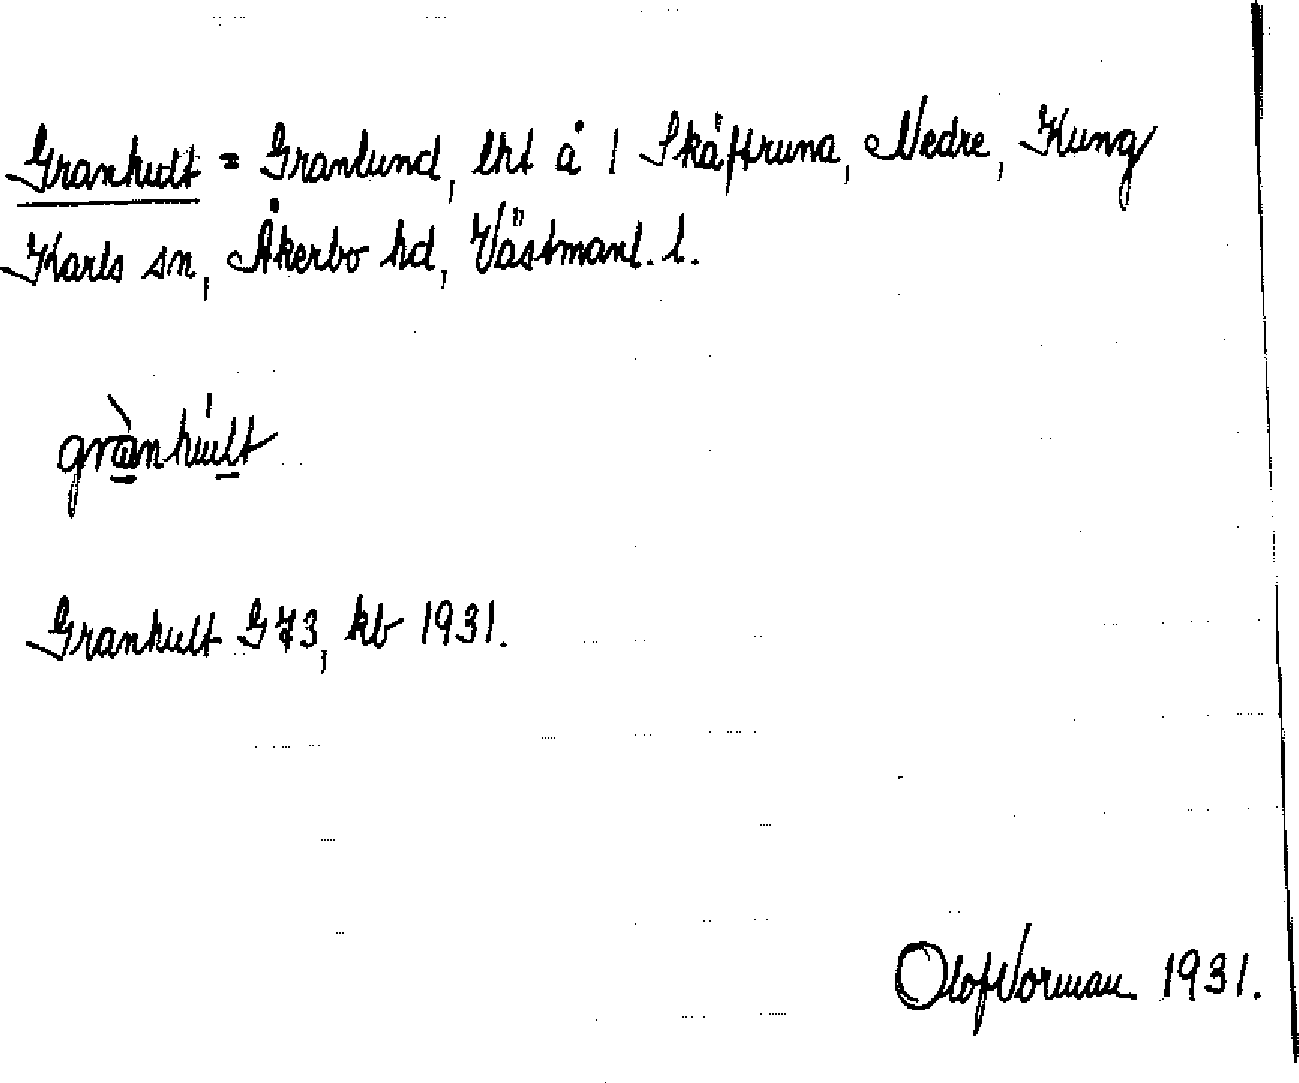 Granhult = Granlund, lht å 1 Skäftruna, Nedre, Kung
Karls sn, Åkerbo hd, Västmanl. l.
grànhult
Granhult G73, kb 1931.
Olof Norman 1931.